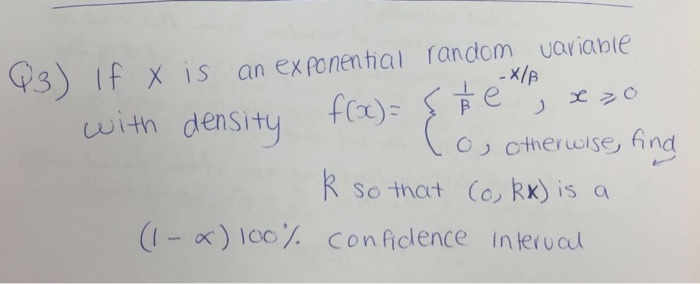 Q3) If X is an exponential random variable
with density f(x) = { 1/β e^-x/β, x ≥ 0
0, otherwise, find
k so that (0, kx) is a
(1 - α) 100% confidence interval